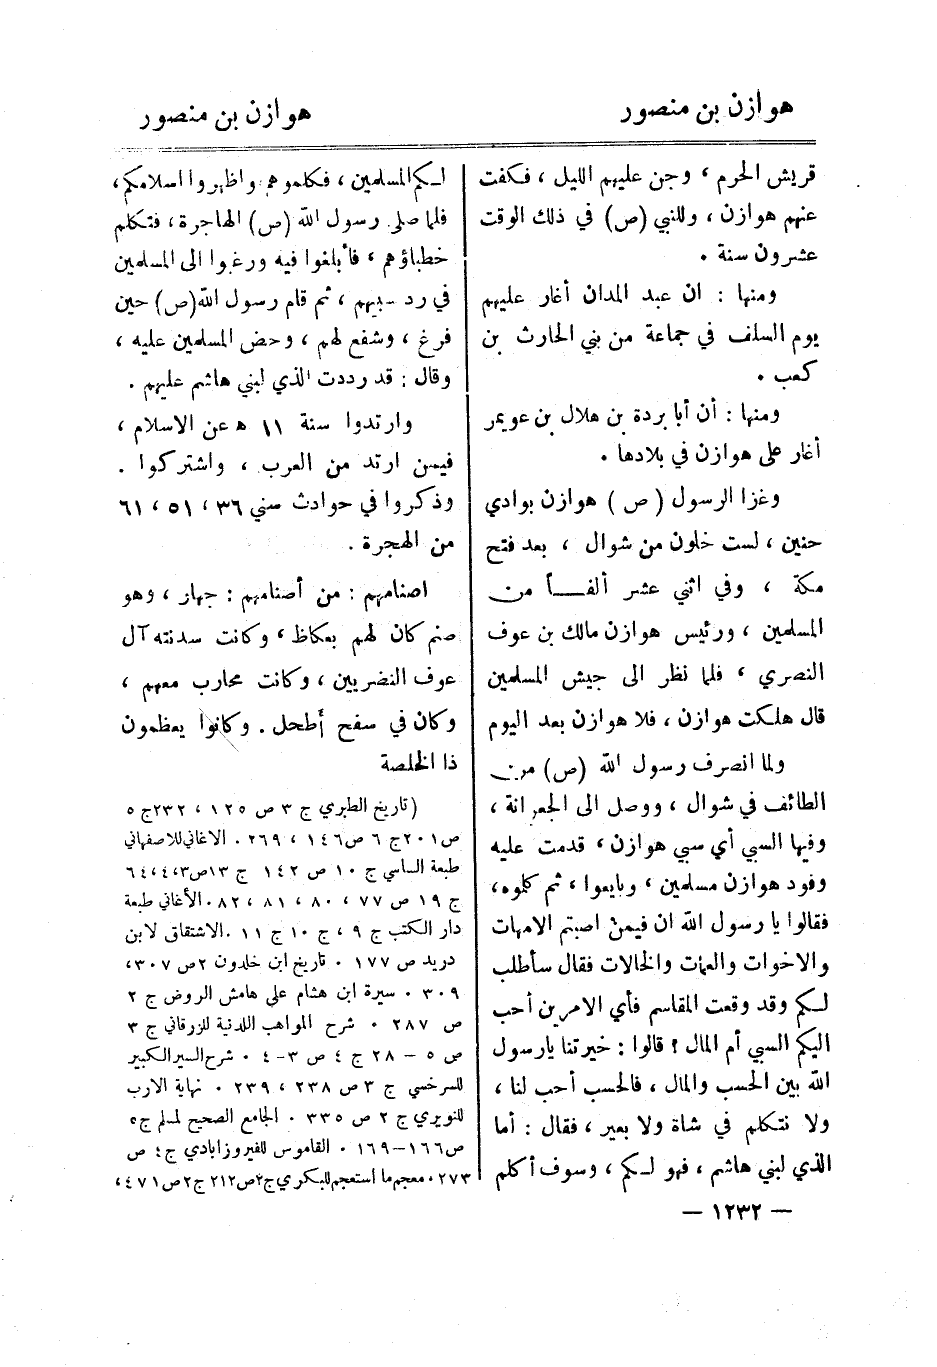 هوازن بن منصور
هوازن بن منصور
قريش الحرم ، وجن عليهم الليل ، فكفت
عنهم هوازن ، وللنبي (ص) في ذلك الوقت
عشرون سنة .
ومنها : ان عبد المدان أغار عليهم
يوم السلف في جماعة من بني الحارث بن
كعب .
ومنها : أن أبا بردة بن هلال بن عويمر
أغار على هوازن في بلادها .
وغزا الرسول ( ص ) هوازن بوادي
حنين ، لست خلون من شوال ، بعد فتح
مكة ، وفي اثني عشر ألفــاً من
المسلمين ، ورئيس هوازن مالك بن عوف
النصري ، فلما نظر الى جيش المسلمين
قال هلكت هوازن ، فلا هوازن بعد اليوم
ولما انصرف رسول الله (ص) من
الطائف في شوال ، ووصل الى الجعرانة ،
وفيها السبي أي سبي هوازن ، قدمت عليه
وفود هوازن مسلمين ، وبايعوا ، ثم كلموه،
فقالوا يا رسول الله ان فيمن اصبتم الامهات
والاخوات والعمات والخالات فقال سأطلب
لكم وقد وقعت المقاسم فأي الامرين أحب
اليكم السبي أم المال ؟ قالوا : خيرتنا يارسول
الله بين الحسب والمال ، فالحسب أحب لنا ،
ولا نتكلم في شاة ولا بعير ، فقال : أما
الذي لبني هاشم ، فهو لكم ، وسوف أكلم
لكم المسلمين ، فكلموهم واظهروا اسلامكم،
فلما صلى رسول الله (ص) الهاجرة ، فتكلم
خطباؤهم ، فأبلغوا فيه ورغبوا الى المسلمين
في رد سبيهم ، ثم قام رسول الله(ص) حين
فرغ ، وشفع لهم ، وحض المسلمين عليه ،
وقال : قد رددت الذي لبني هاشم عليهم .
وارتدوا سنة ١١ ه عن الاسلام ،
فيمن ارتد من العرب ، واشتركوا .
وذكروا في حوادث سني ٣٦ ، ٥١ ، ٦١
من الهجرة .
اصنامهم : من أصنامهم : جهار ، وهو
صنم كان لهم بعكاظ ، وكانت سدنته آل
عوف النضريين ، وكانت محارب معهم ،
وكان في سفح أطحل . وكانوا يعظمون
ذا الخلصة
(تاريخ الطبري ج ٣ ص ١٢٥ ، ٢٣٢ج ٥
ص٢٠١ج ٦ ص١٤٦ ، ٢٦٩ . الاغاني للاصفهاني
طبعة الساسي ج ١٠ ص ١٤٢ ج ١٣ص٣،٤،٦٤
ج ١٩ ص ٧٧ ، ٨٠ ، ٨١ ، ٨٢ .الأغاني طبعة
دار الكتب ج ٩ ، ج ١٠ ج ١١ .الاشتقاق لابن
دريد ص ١٧٧ . تاريخ ابن خلدون ٢ص ٣٠٧،
٣٠٩ . سيرة ابن هشام على هامش الروض ج ٢
ص ٢٨٧ . شرح المواهب اللدنية للزرقاني ج ٣
ص ٥ – ٢٨ ج ٤ ص ٣-٤ . شرح السير الكبير
للسرخسي ج ٣ ص ٢٣٨ ، ٢٣٩ . نهاية الارب
للنويري ج ٢ ص ٣٣٥ . الجامع الصحيح لمسلم ج٥
ص١٦٦–١٦٩ . القاموس للفيروزابادي ج٤ ص
٢٧٣ . معجم ما أستعجم للبكري ج٢ص٢١٢ ج٢ص٤٧١،
— ١٢٣٢ —